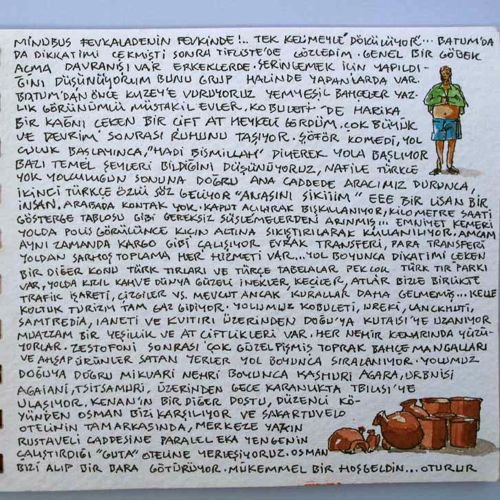 MİNÜBÜS FEVKALADENİN FEVKİNDE!.. TEK KELİMEYLE "DÖKÜLÜYOR"... BATUM'DA
DA DİKKATİMİ ÇEKMİŞTİ SONRA TİFLİSTE'DE GÖZLEDİM. GENEL BİR GÖBEK
AÇMA DAVRANIŞI VAR ERKEKLERDE. SERİNLEMEK İÇİN YAPILDI-
ĞINI DÜŞÜNÜYORUM BUNU GRUP HALİNDE YAPANLARDA VAR.
BATUM'DAN ÖNCE KUZEY'E VURUYORUZ YEMYEŞİL BAHÇELER YAZ-
LIK GÖRÜNÜMLÜ MÜSTAKİL EVLER, KOBULETİ'DE HARİKA
BİR KAĞNI ÇEKEN BİR ÇİFT AT HEYKELİ GÖRDÜM. ÇOK BÜYÜK
VE DEVRİM SONRASI RUHUNU TAŞIYOR. ŞÖFÖR KOMEDİ, YOL
CULUK BAŞLAYINCA, "HADİ BİSMİLLAH" DİYEREK YOLA BAŞLIYOR
BAZI TEMEL ŞEYLERİ BİLDİĞİNİ DÜŞÜNÜYORUZ, NAFİLE TÜRKÇE
YOK YOLCULUĞUN SONUNA DOĞRU ANA CADDEDE ARACIMIZ DURUNCA,
İKİNCİ TÜRKÇE ÖZLÜ SÖZ GELİYOR "ANASINI SİKİİİM" EEE BİR LİSAN BİR
İNSAN. ARABADA KONTAK YOK. KAPUT AÇILARAK BIÇKALANIYOR. KİLOMETRE SAATİ
GÖSTERGE TABLOSU GİBİ GEREKSİZ SÜSLEMELERDEN ARINMIŞ... EMNİYET KEMERİ
YOLDA POLİS GÖRÜLÜNCE KIÇIN ALTINA SIKIŞTIRILARAK KULLANILIYOR. AMCAM
AYNI ZAMANDA KARGO GİBİ ÇALIŞIYOR EVRAK TRANSFERİ, PARA TRANSFERİ
YOLDAN SARHOŞ TOPLAMA HER HİZMETİ VAR... YOL BOYUNCA DİKKATİMİ ÇEKEN
BİR DİĞER KONU TÜRK TIRLARI VE TÜRKÇE TABELALAR PEK ÇOK TÜRK TIR PARKI
VAR, YOLDA KIZIL KAHVE DÜNYA GÜZELİ İNEKLER, KEÇİLER, ATLAR BİZLE BİRLİKTE
TRAFİK İŞARETİ, ÇİZGİLER VS. MEVCUT ANCAK KURALLAR DAHA GELMEMİŞ... KELLE
KOLTUK TURİZM TAM GAZ GİDİYOR. YOLUMUZ KOBULETİ, UREKİ, LANCKHUTİ,
SAMTREDİA, İANETİ VE KVİTİRİ ÜZERİNDEN DOĞU'YA KUTAİSİ'YE UZANIYOR
MUAZZAM BİR YEŞİLLİK VE AT ÇİFTLİKLERİ VAR. HER NEHİR KENARINDA YÜZÜ-
YORLAR. ZESTOFONİ SONRASI ÇOK GÜZEL PİŞMİŞ TOPRAK BAHÇE MANGALLARI
VE AHŞAP ÜRÜNLER SATAN YERLER YOL BOYUNCA SIRALANIYOR. YOLUMUZ
DOĞUYA DOĞRU MTKUARİ NEHRİ BOYUNCA KASHURİ AGARA, URBNİSİ
AGAİANİ, TSİTSAMURİ, ÜZERİNDEN GECE KARANLIKTA TBİLİSİ'YE
ULAŞIYOR. KENAN'IN BİR DİĞER DOSTU, DÜZENLİ KÖ-
YÜNDEN OSMAN BİZİ KARŞILIYOR VE SAKARTUVELO
OTELİNİN TAM ARKASINDA, MERKEZE YAKIN
RUSTAVELİ CADDESİNE PARALEL EKA YENGENİN
ÇALIŞTIRDIĞI "GUTA" OTELİNE YERLEŞİYORUZ. OSMAN
BİZİ ALIP BİR BARA GÖTÜRÜYOR. MÜKEMMEL BİR HOŞGELDİN... OTURUR